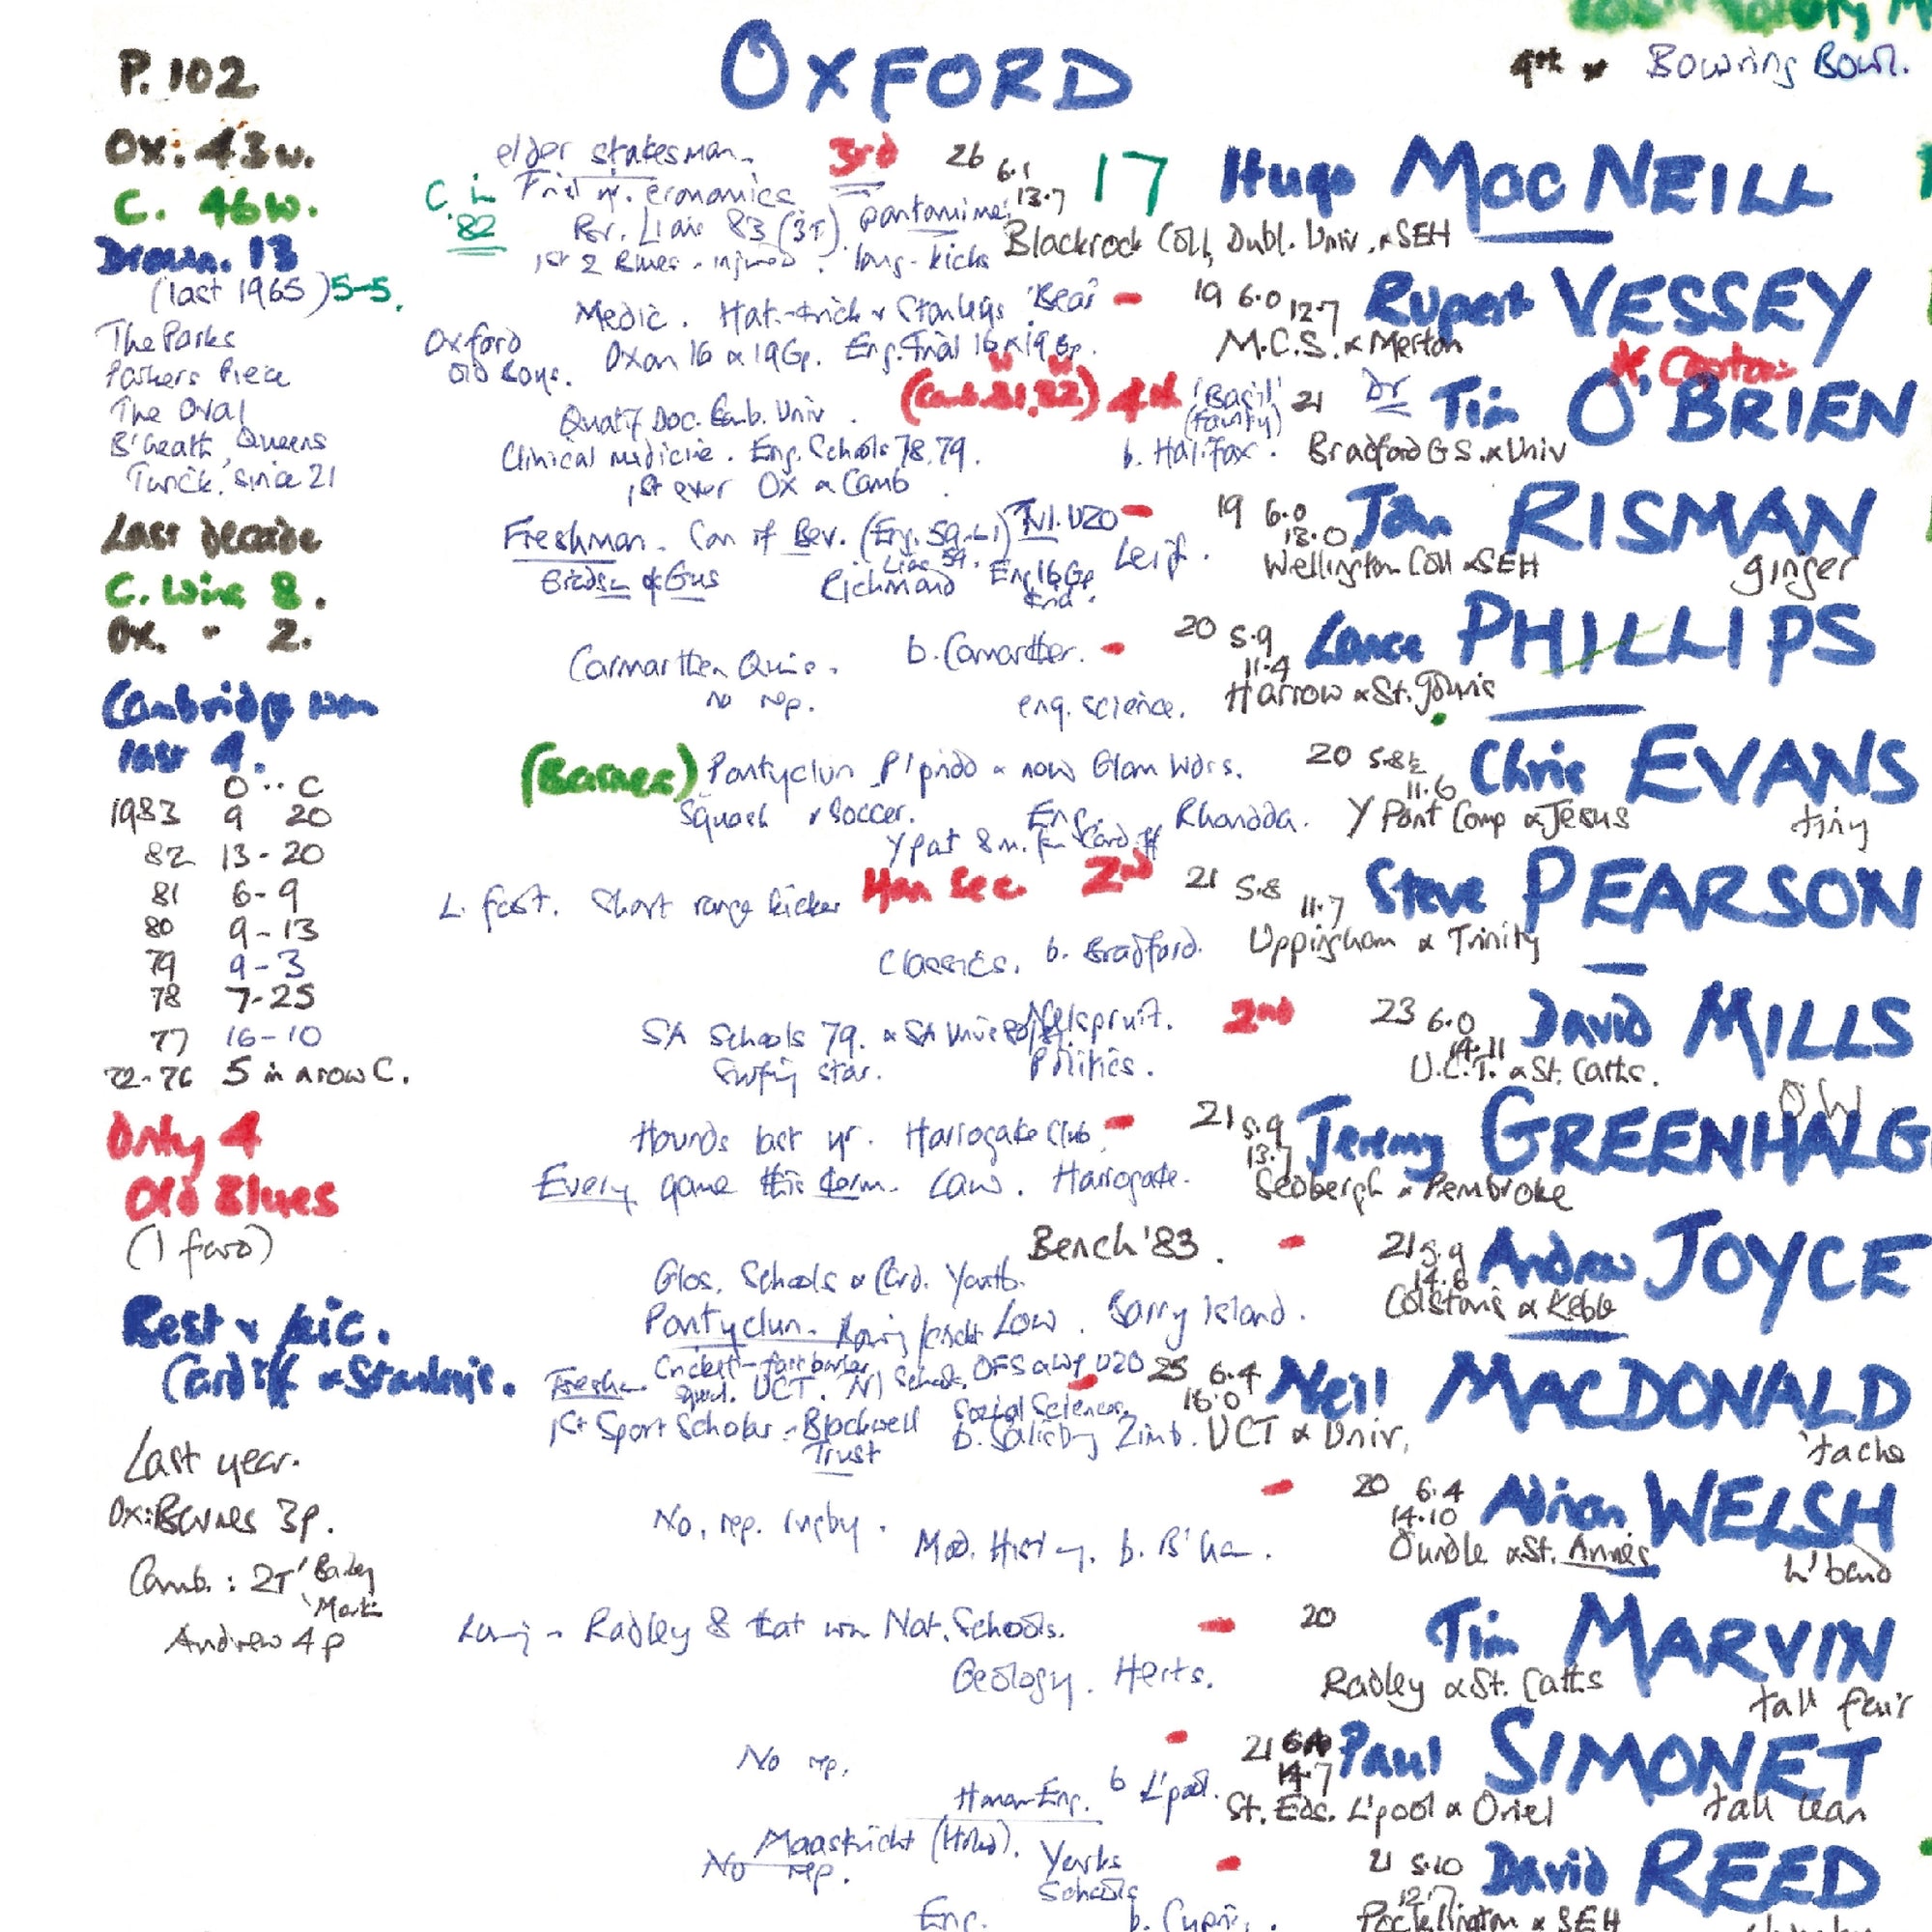 OXFORD
4th Bowring Bowl.
P. 102
Ox: 43w.
C. 46w.
Drawn. 13
(last 1965) 5-5.
The Parks
Parkers Piece
The Oval
B'heath, Queens
Twick. since 21
Last decade
C. wins 8.
Ox. " 2.
Cambridge won
last 4.
O .. C
1983 9 20
82 13-20
81 6-9
80 9-13
79 9-3
78 7-25
77 16-10
72-76 5 in a row C.
Only 4
Old Blues
(1 fwd)
Best v
Cardiff & Stanleys.
Last year.
Ox: Barnes 3p.
Camb.: 2T Bailey
Martin
Andrew 4p
elder statesman. 3rd 26 6.1 13.7 17 Hugo MacNEILL
C. in 82
economics. pantomime.
Br. Lions 83 (3T).
1st 2 Blues - injured. long-kicks
Blackrock Coll, Dubl. Univ. & SEH
Medic. Hat-trick v Stanleys 'Bear' - 19 6.0 12.7 Rupert VESSEY
Oxford Old Boys. Oxon 16 & 19 Gp. Eng. Trial 16 & 19 Gp. M.C.S. & Merton
* Captain
(Camb. 81, 82) 4th 'Basil' (Fawlty) 21 Dr Tim O'BRIEN
Qualif Doc. Camb. Univ.
Clinical medicine. Eng. Schools 78, 79. b. Halifax. Bradford G.S. & Univ
1st ever Ox & Camb
Freshman. Son of Bev. (Eng. 59-61) U20 - 19 6.0 13.0 John RISMAN
Lions 59. Richmond Eng 16 Gp Leif. Wellington Coll & SEH ginger
& Gus
Carmarthen Quins. b. Carmarthen. - 20 5.9 11.4 Lance PHILLIPS
no rep. eng. science. Harrow & St. John's
(Barnes) Pontyclun P'pridd & now Glam Wdrs. 20 5.8½ 11.6 Chris EVANS
Squash & Soccer. Eng. Rhondda. Y Pant Comp & Jesus tiny
Y Pant 8 m. fr. Cardiff
L. foot. Short range kicker Hon Sec 2nd 21 5.8 11.7 Steve PEARSON
Classics. b. Bradford. Uppingham & Trinity
SA Schools 79. & SA Univs Nelspruit. 2nd 23 6.0 14.11 David MILLS
Surfing star. Politics. U.C.T. & St. Catts.
Hounds last yr. Harrogate Club - 21 5.9 13.7 Jeremy GREENHALG
Every game this term. Law. Harrogate. Sedbergh & Pembroke
Bench '83. - 21 5.9 14.6 Andrew JOYCE
Glos. Schools & Card. Youth.
Pontyclun. Law. Barry Island. Colston's & Keble
Cricket - fast bowler OFS & WP U20 25 6.4 16.0 Neil MACDONALD
squad. UCT. Social Sciences
1st Sport Scholar - Blackwell Trust b. Salisbury Zimb. UCT & Univ. 'tache
No. rep. rugby. - 20 6.4 14.10 Adrian WELSH
Mod. History. b. B'ham. Oundle & St. Annes h'band
Radley 8 that won Nat. Schools. - 20 Tim MARVIN
Geology. Herts. Radley & St. Catts tall fair
No rep. - 21 6.4 14.7 Paul SIMONET
b L'pool. St. Eds. L'pool & Oriel tall lean
Maastricht (Holl). Yorks Schools - 21 5.10 12.7 David REED
No rep.
Eng. b. Pocklington & SEH